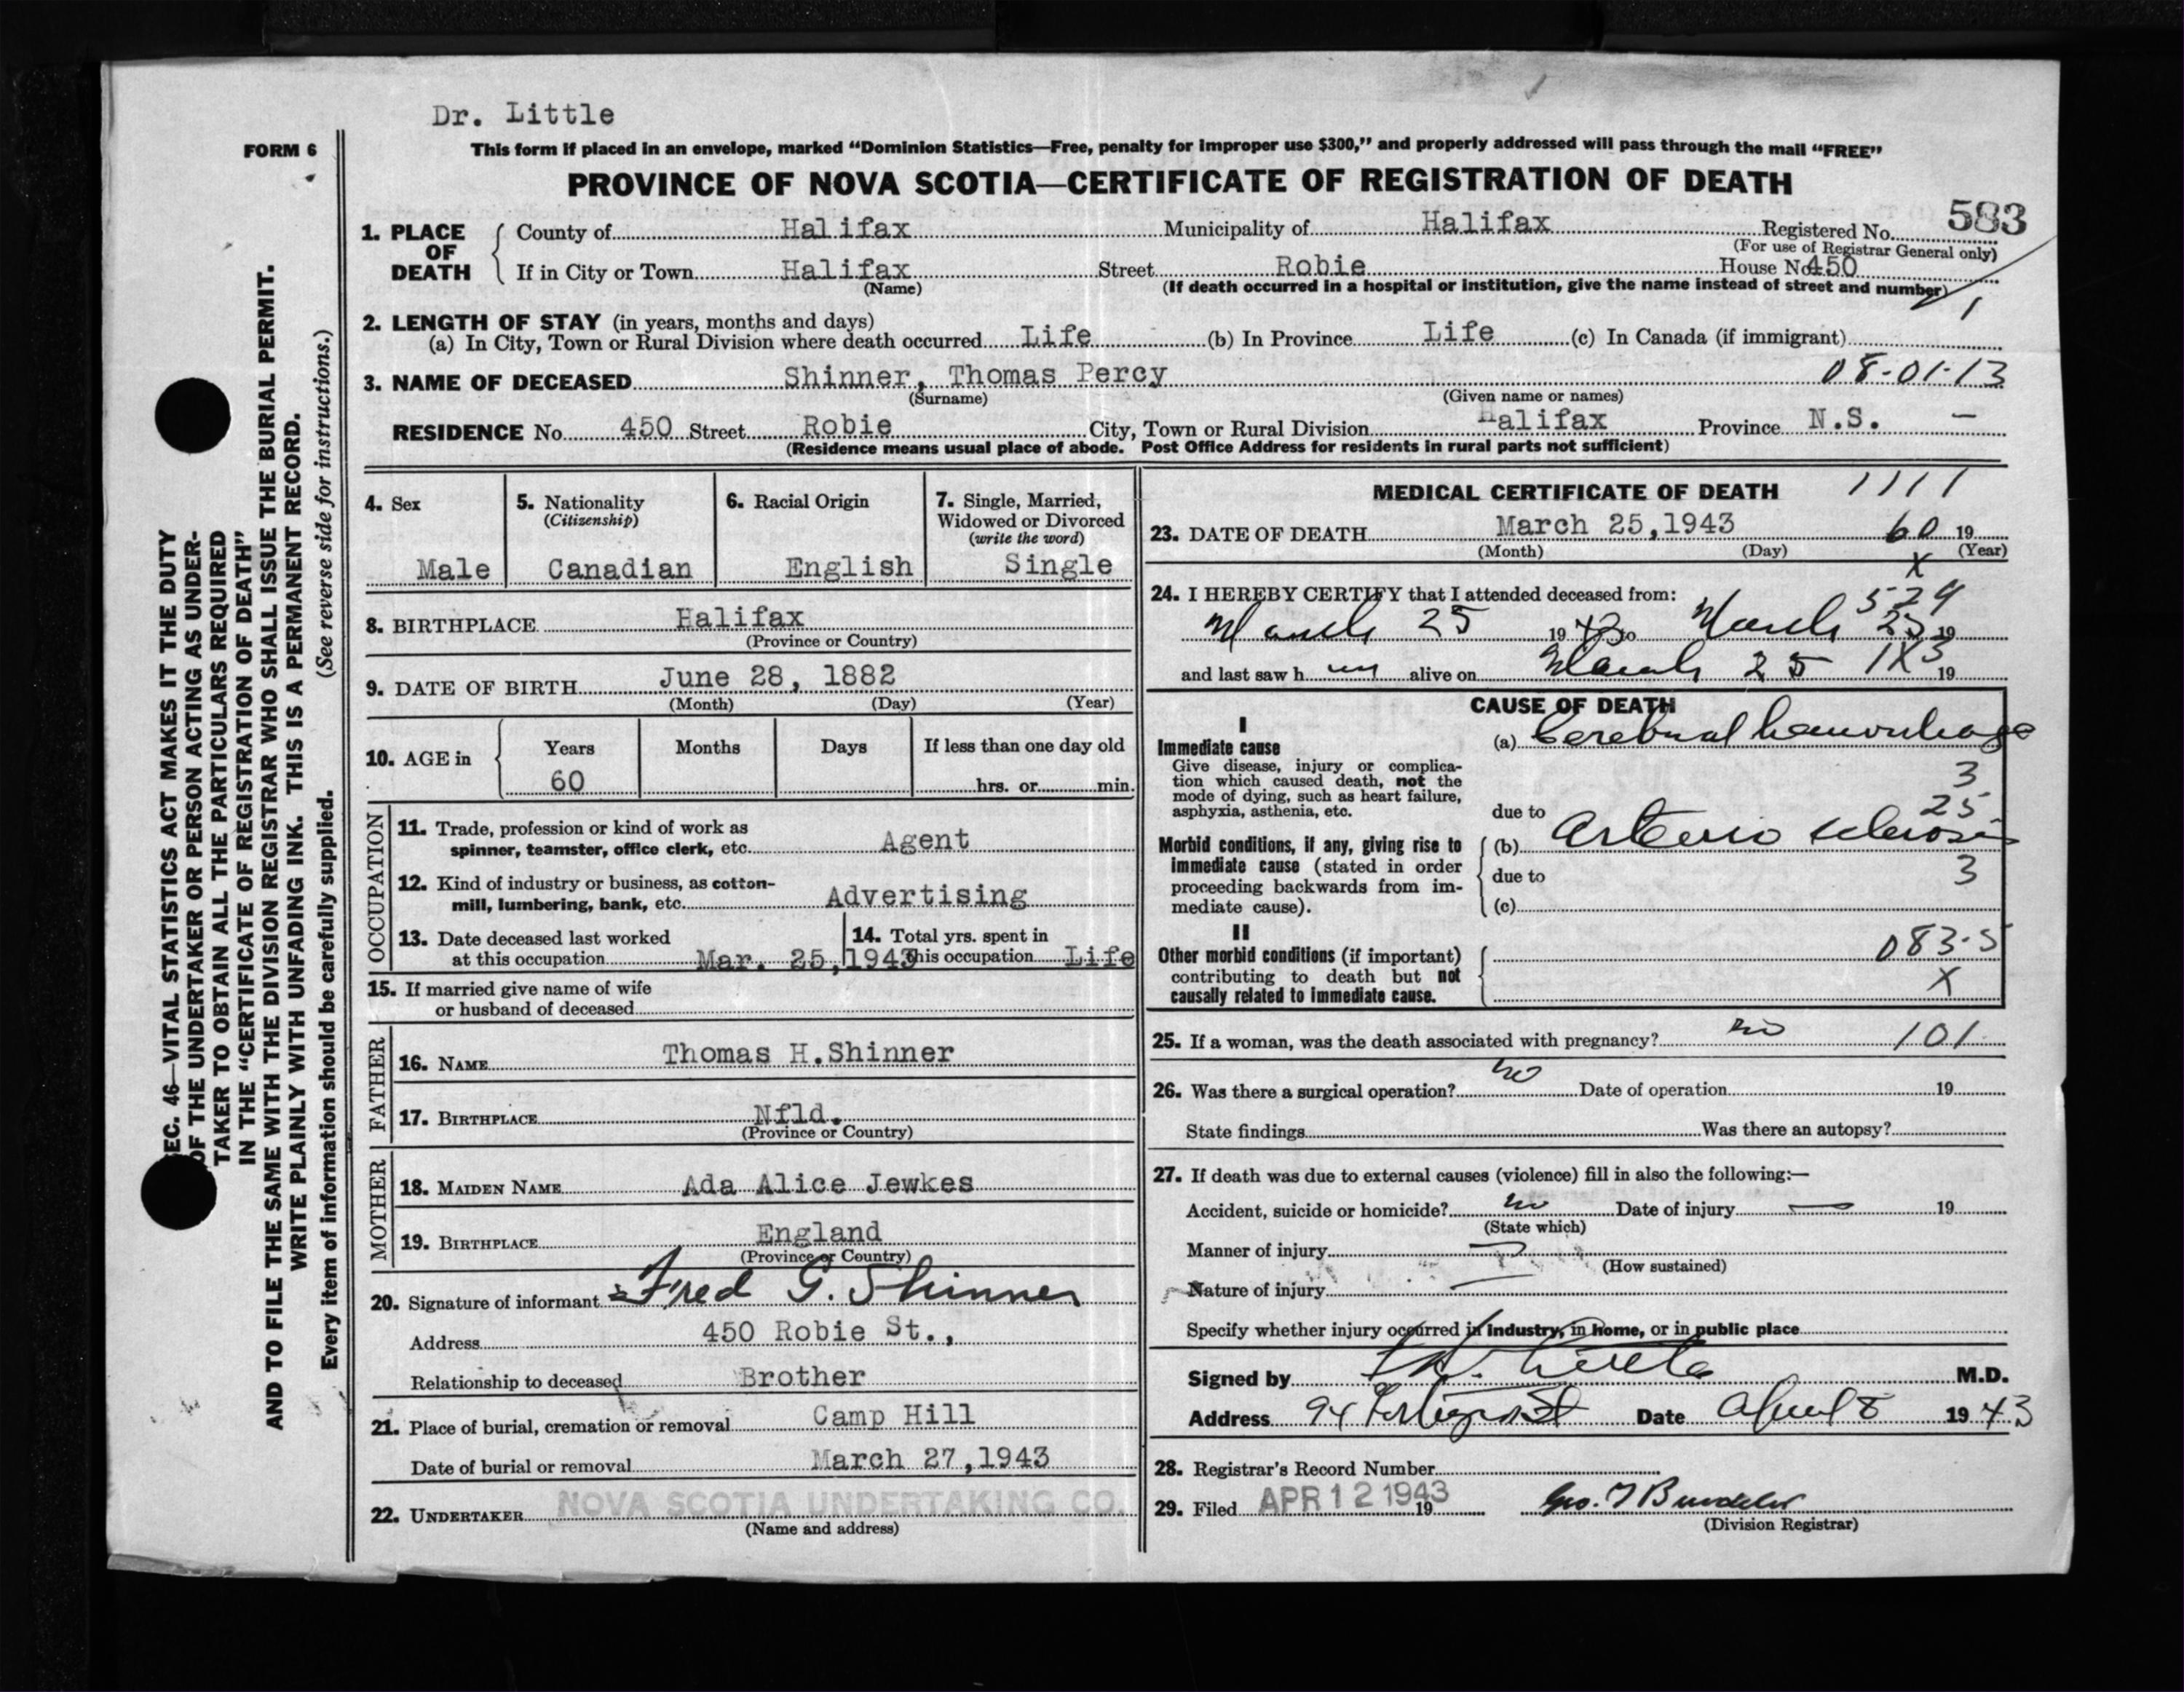 Dr. Little
FORM 6
This form if placed in an envelope, marked "Dominion Statistics—Free, penalty for improper use $300," and properly addressed will pass through the mail "FREE"
PROVINCE OF NOVA SCOTIA—CERTIFICATE OF REGISTRATION OF DEATH
1. PLACE OF DEATH
County of Halifax Municipality of Halifax Registered No. 583
(For use of Registrar General only)
If in City or Town Halifax Street Robie House No. 450
(Name) (If death occurred in a hospital or institution, give the name instead of street and number)
1
2. LENGTH OF STAY (in years, months and days)
(a) In City, Town or Rural Division where death occurred Life (b) In Province Life (c) In Canada (if immigrant)
3. NAME OF DECEASED Shinner, Thomas Percy 08-01-13
(Surname) (Given name or names)
RESIDENCE No. 450 Street Robie City, Town or Rural Division Halifax Province N.S. —
(Residence means usual place of abode. Post Office Address for residents in rural parts not sufficient)
SEC. 46—VITAL STATISTICS ACT MAKES IT THE DUTY
OF THE UNDERTAKER OR PERSON ACTING AS UNDER-
TAKER TO OBTAIN ALL THE PARTICULARS REQUIRED
IN THE "CERTIFICATE OF REGISTRATION OF DEATH"
AND TO FILE THE SAME WITH THE DIVISION REGISTRAR WHO SHALL ISSUE THE BURIAL PERMIT.
WRITE PLAINLY WITH UNFADING INK. THIS IS A PERMANENT RECORD.
Every item of information should be carefully supplied. (See reverse side for instructions.)
4. Sex
Male
5. Nationality
(Citizenship)
Canadian
6. Racial Origin
English
7. Single, Married,
Widowed or Divorced
(write the word)
Single
8. BIRTHPLACE Halifax
(Province or Country)
9. DATE OF BIRTH June 28, 1882
(Month) (Day) (Year)
10. AGE in
Years Months Days If less than one day old
60 hrs. or min.
OCCUPATION
11. Trade, profession or kind of work as
spinner, teamster, office clerk, etc. Agent
12. Kind of industry or business, as cotton-
mill, lumbering, bank, etc. Advertising
13. Date deceased last worked
at this occupation Mar. 25, 1943
14. Total yrs. spent in
this occupation Life
15. If married give name of wife
or husband of deceased
FATHER
16. NAME Thomas H. Shinner
17. BIRTHPLACE Nfld.
(Province or Country)
MOTHER
18. MAIDEN NAME Ada Alice Jewkes
19. BIRTHPLACE England
(Province or Country)
20. Signature of informant Fred G. Shinner
Address 450 Robie St.,
Relationship to deceased Brother
21. Place of burial, cremation or removal Camp Hill
Date of burial or removal March 27, 1943
22. UNDERTAKER NOVA SCOTIA UNDERTAKING CO.
(Name and address)
MEDICAL CERTIFICATE OF DEATH 1111
23. DATE OF DEATH March 25, 1943 60 19
(Month) (Day) (Year)
X
24. I HEREBY CERTIFY that I attended deceased from: 529
March 25 1943 to March 25 19
and last saw h im alive on March 25 1X3 19
CAUSE OF DEATH
I
Immediate cause
Give disease, injury or complica-
tion which caused death, not the
mode of dying, such as heart failure,
asphyxia, asthenia, etc.
(a) Cerebral hemorrhage
3
25
due to
Morbid conditions, if any, giving rise to
immediate cause (stated in order
proceeding backwards from im-
mediate cause).
(b) Arterio sclerosis
3
due to
(c)
II
Other morbid conditions (if important)
contributing to death but not
causally related to immediate cause.
083.5
X
25. If a woman, was the death associated with pregnancy? no 101
26. Was there a surgical operation? no Date of operation 19
State findings Was there an autopsy?
27. If death was due to external causes (violence) fill in also the following:—
Accident, suicide or homicide? no Date of injury — 19
(State which)
Manner of injury —
(How sustained)
Nature of injury —
Specify whether injury occurred in industry, in home, or in public place
Signed by Little M.D.
Address 94 St Date April 8 1943
28. Registrar's Record Number
29. Filed APR 12 1943 19 Geo.
(Division Registrar)